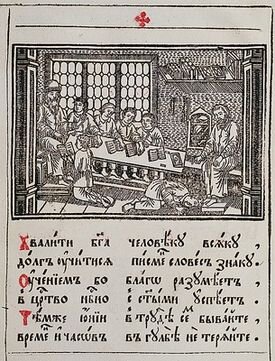 Хвалити бг҃а человѣку всѧку,
долгъ ꙋчитисѧ писменъ словесъ знаку.
Оученїемъ бо благѡ разꙋмѣетъ,
в црс҃тво нб҃но с ст҃ыми оуспѣетъ.
Тѣмже юнїи в трꙋдѣ сѐмъ бывайте,
времѧ и часѡвъ в гꙋлбѣ не терѧйте.